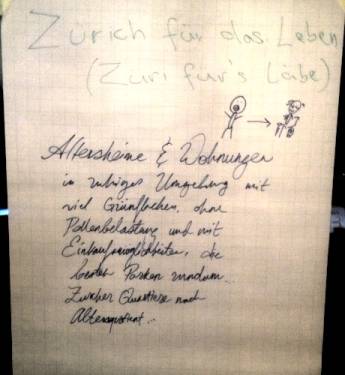 Zürich für das Leben
(Züri fur's Läbe)
Altersheime & Wohnungen
in ruhiges Umgebung mit
viel Grünflächen, ohne
Pollenbelastung und mit
Einkaufsmöglichkeiten, die
besten Parken rundum.
Zürcher Quartiere nach